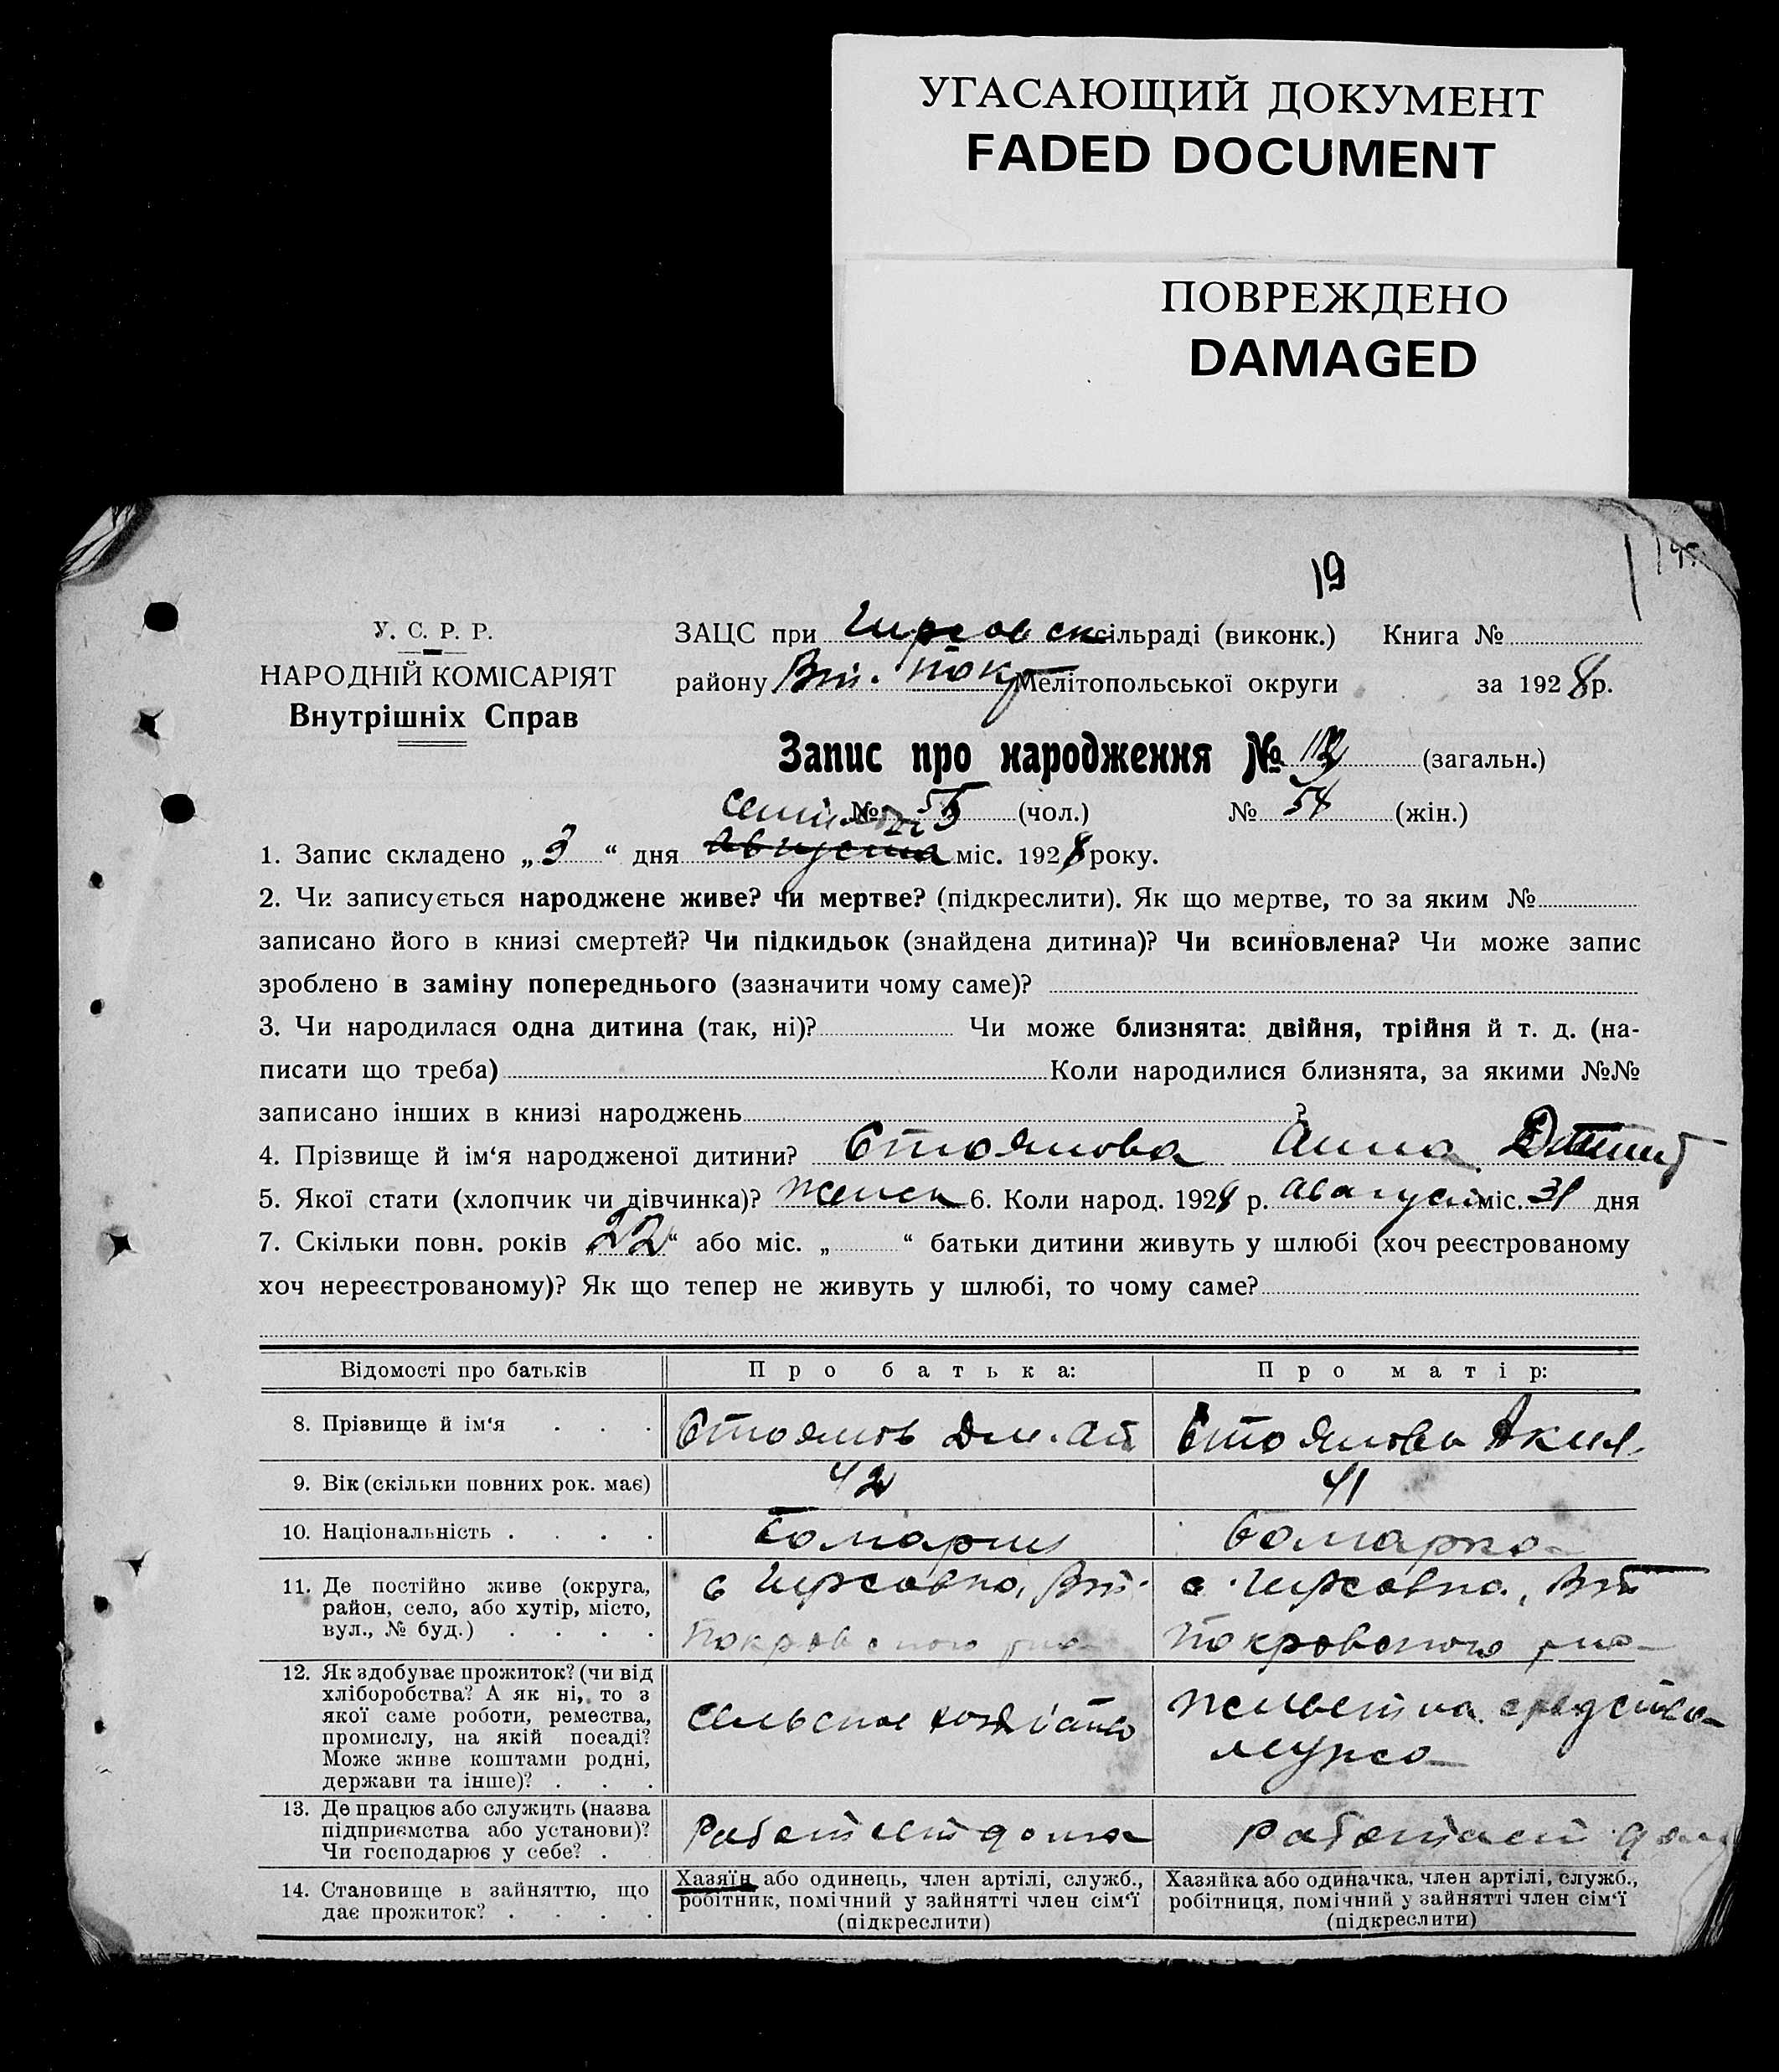 УГАСАЮЩИЙ ДОКУМЕНТ
FADED DOCUMENT
ПОВРЕЖДЕНО
DAMAGED
19
У. С. Р. Р.
НАРОДНІЙ КОМІСАРІЯТ
Внутрішніх Справ
ЗАЦС при Гирсовск сільраді (виконк.) Книга №
району Вт. Покр Мелітопольської округи за 1928 р.
Запис про народження № (загальн.)
№ 55 (чол.) № 54 (жін.)
1. Запис складено „3“ дня августа міс. 1928 року.
2. Чи записується народжене живе? чи мертве? (підкреслити). Як що мертве, то за яким №
записано його в книзі смертей? Чи підкидьок (знайдена дитина)? Чи всиновлена? Чи може запис
зроблено в заміну попереднього (зазначити чому саме)?
3. Чи народилася одна дитина (так, ні)? Чи може близнята: двійня, трійня й т. д. (на-
писати що треба) Коли народилися близнята, за якими №№
записано інших в книзі народжень ?
4. Прізвище й ім‘я народженої дитини? Стоянова Анна
5. Якої стати (хлопчик чи дівчинка)? Женск 6. Коли народ. 1928 р. Август міс. 31 дня
7. Скільки повн. років „22“ або міс. „ “ батьки дитини живуть у шлюбі (хоч реєстрованому
хоч нереєстрованому)? Як що тепер не живуть у шлюбі, то чому саме?
Відомості про батьків Про батька: Про матір:
8. Прізвище й ім‘я . . . Стоянов Дм. Стоянова Акил.
9. Вік (скільки повних рок. має) 42 41
10. Національність . . . . Болгарин Болгарка
11. Де постійно живе (округа,
район, село, або хутір, місто,
вул., № буд.) . . . .
с Гирсовка, Вт.
Покровского рна
с. Гирсовка, Вт
Покровского рна
12. Як здобуває прожиток? (чи від
хліборобства? А як ні, то з
якої саме роботи, ремества,
промислу, на якій посаді?
Може живе коштами родні,
держави та інше)? . . .
сельское хозяйство
Живет на средства
мужа
13. Де працює або служить (назва
підприємства або установи)?
Чи господарює у себе? .
Работает дома
работает дома
14. Становище в зайняттю, що
дає прожиток? . . . .
Хазяїн або одинець, член артілі, служб.,
робітник, помічний у зайнятті член сім‘ї
(підкреслити)
Хазяйка або одиначка, член артілі, служб.,
робітниця, помічний у зайнятті член сім‘ї
(підкреслити)